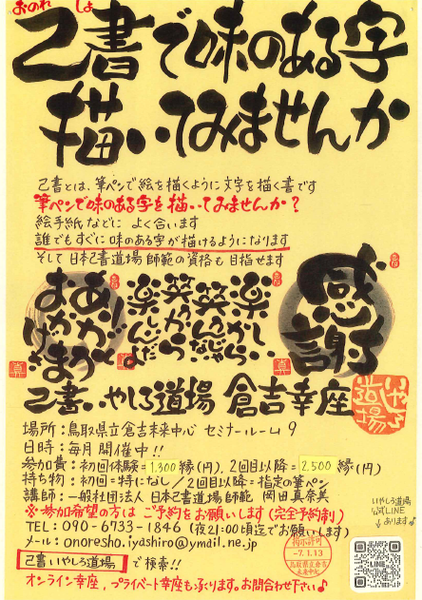 おのれ しょ
己書で味のある字
描いてみませんか
己書とは、筆ペンで絵を描くように文字を描く書です
筆ペンで味のある字を描いてみませんか?
絵手紙などに よく合います
誰でもすぐに味のある字が描けるようになります
そして日本己書道場 師範の資格も目指せます
感謝
ありがとう
おかげさま
己書いやしろ道場 倉吉幸座
いやしろ道場
場所:鳥取県立倉吉未来中心 セミナールーム9
日時:毎月開催中!!
参加費:初回体験=1,300縁(円)、2回目以降=2,500縁(円)
持ち物:初回=特になし/2回目以降=指定の筆ペン
講師:一般社団法人 日本己書道場 師範 岡田真奈美
※参加希望の方は ご予約をお願いします(完全予約制)
TEL:090-6733-1846 (夜21:00頃迄でお願いします)
メール:onoresho.iyashiro@ymail.ne.jp
己書いやしろ道場 で検索!!
オンライン幸座、プライベート幸座も承ります。お問合わせ下さい♪
いやしろ道場
公式LINE
あります
掲示許可
-7.1.13
鳥取県立倉吉
未来中心